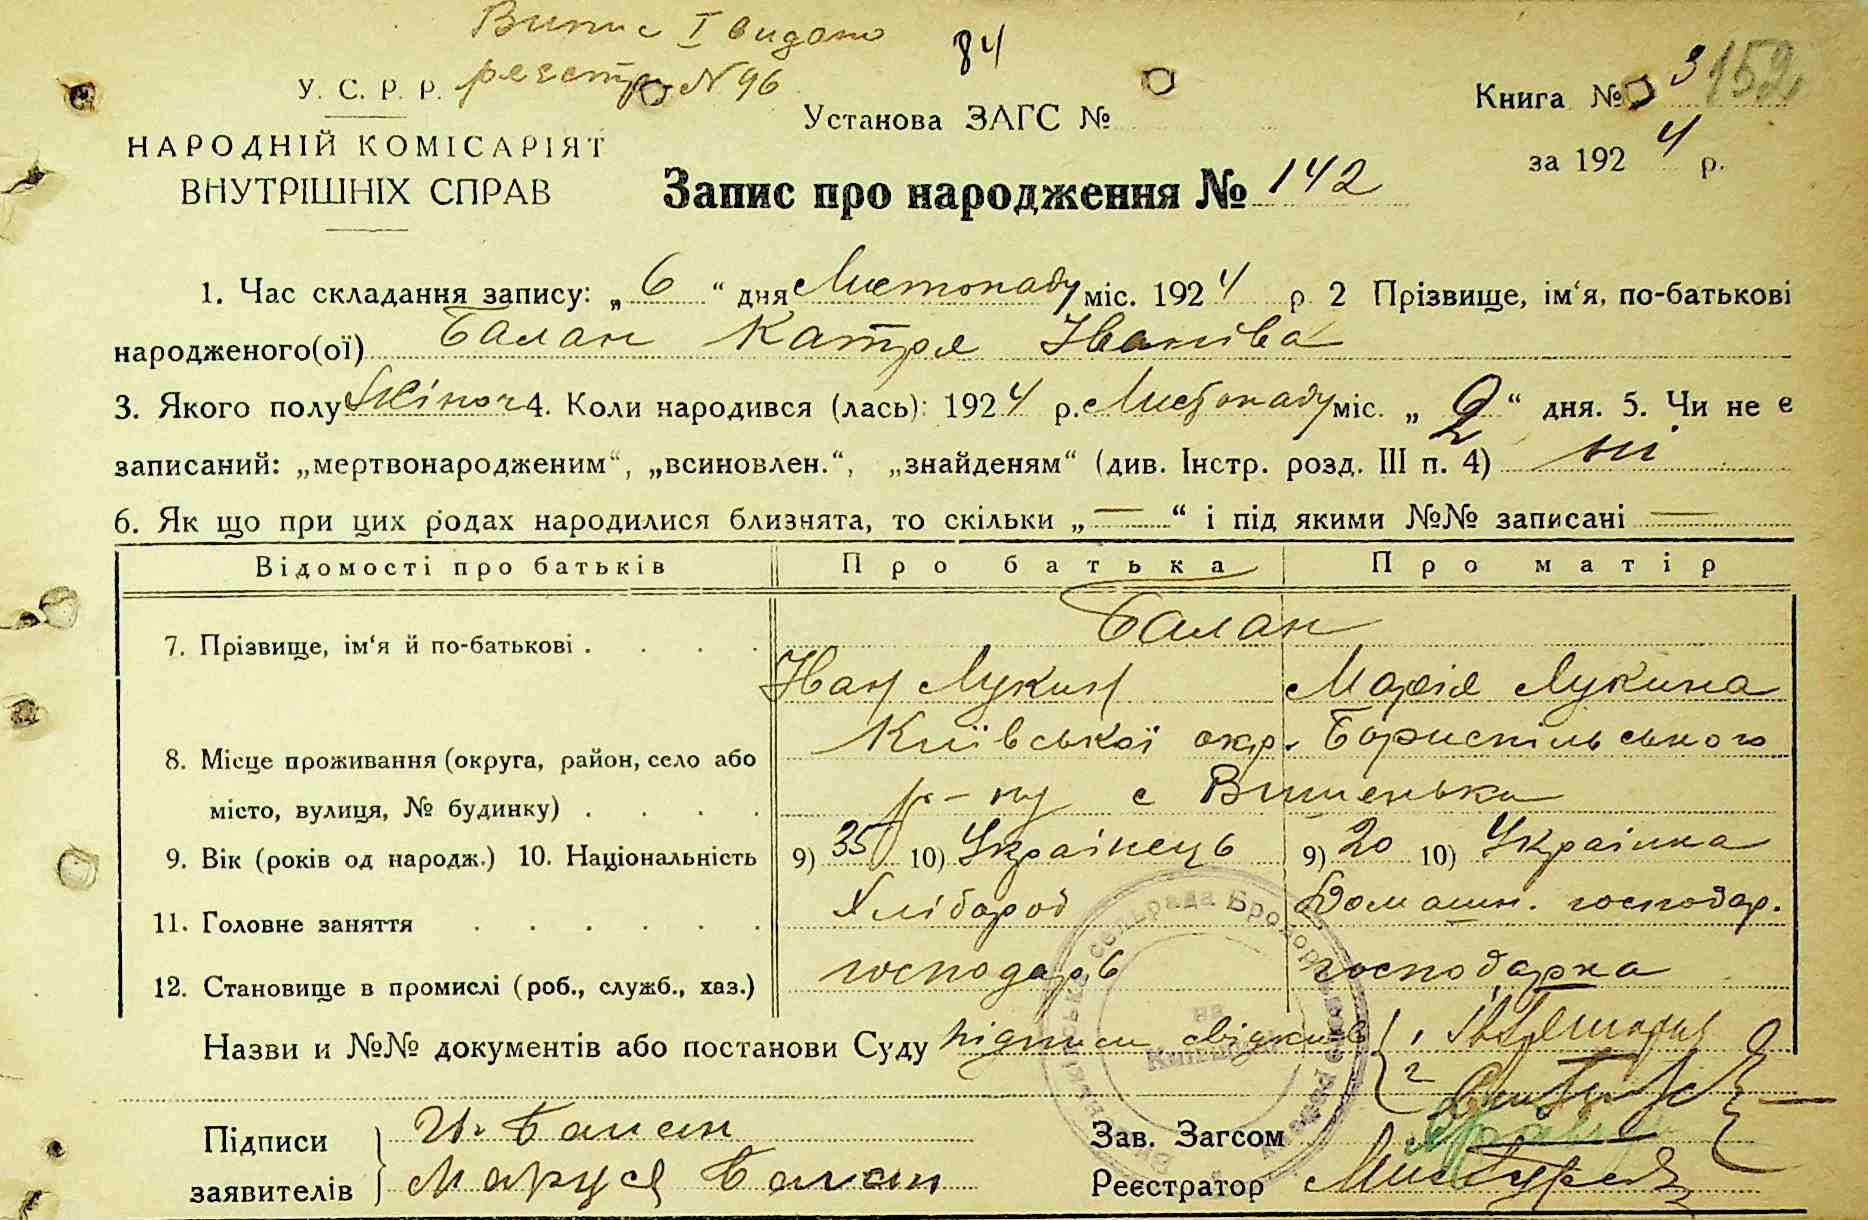 Випис I видано
реєстр. N 96
84
152
У. С. Р. Р.
НАРОДНІЙ КОМІСАРІЯТ
ВНУТРІШНІХ СПРАВ
Установа ЗАГС №
Книга № 3
за 1924 р.
Запис про народження № 142
1. Час складання запису: „6“ дня Листопаду міс. 1924 р 2 Прізвище, ім‘я, по-батькові
народженого(ої) Балан Катря Іванівα
3. Якого полу жіноч 4. Коли народився (лась): 1924 р. Листопаду міс. „2“ дня. 5. Чи не є
записаний: „мертвонародженим“, „всиновлен.“, „знайденям“ (див. Інстр. розд. III п. 4) ні
6. Як що при цих родах народилися близнята, то скільки „—“ і під якими №№ записані —
Відомості про батьків Про батька Про матір
7. Прізвище, ім‘я й по-батькові . . . . Балан
Иван Лукич Марія Лукина
8. Місце проживання (округа, район, село або Київської окр. Бориспільського
місто, вулиця, № будинку) . . . . р-ну с Вишенька
9. Вік (років од народж.) 10. Національність 9) 35 10) Українець 9) 20 10) Українка
11. Головне заняття . . . . . . Хлібороб Домашн. господар.
12. Становище в промислі (роб., служб., хаз.) господарь господарка
Назви и №№ документів або постанови Суду підписи свідків 1
2
Підписи И. Балан Зав. Загсом
заявителів Маруся Балан Реєстратор
сельрада Броварського району
на Київщині